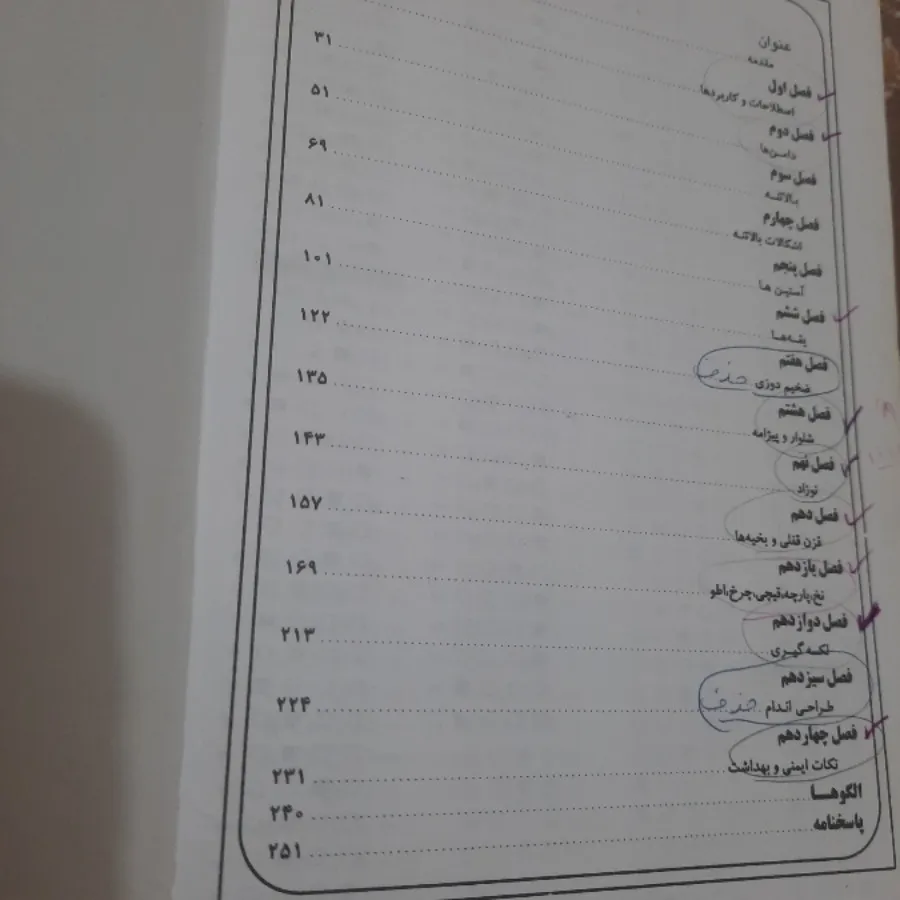 عنوان
مقدمه
فصل اول
اصطلاحات و کاربردها
فصل دوم
دامن‌ها ۳۱
فصل سوم
بالاتنه ۵۱
فصل چهارم
اشکالات بالاتنه ۶۹
فصل پنجم
آستین ها ۸۱
فصل ششم
یقه‌ها ۱۰۱
فصل هفتم
ضخیم دوزی حذف ۱۲۲
فصل هشتم
شلوار و پیژامه ۱۳۵
فصل نهم
نوزاد ۱۴۳
فصل دهم
قزن قفلی و بخیه‌ها ۱۵۷
فصل یازدهم
نخ،پارچه،قیچی،چرخ،اطو ۱۶۹
فصل دوازدهم
لکه گیری ۲۱۳
فصل سیزدهم
طراحی اندام حذف ۲۲۴
فصل چهاردهم
نکات ایمنی و بهداشت ۲۳۱
الگوهـا ۲۴۰
پاسخنامه ۲۵۱